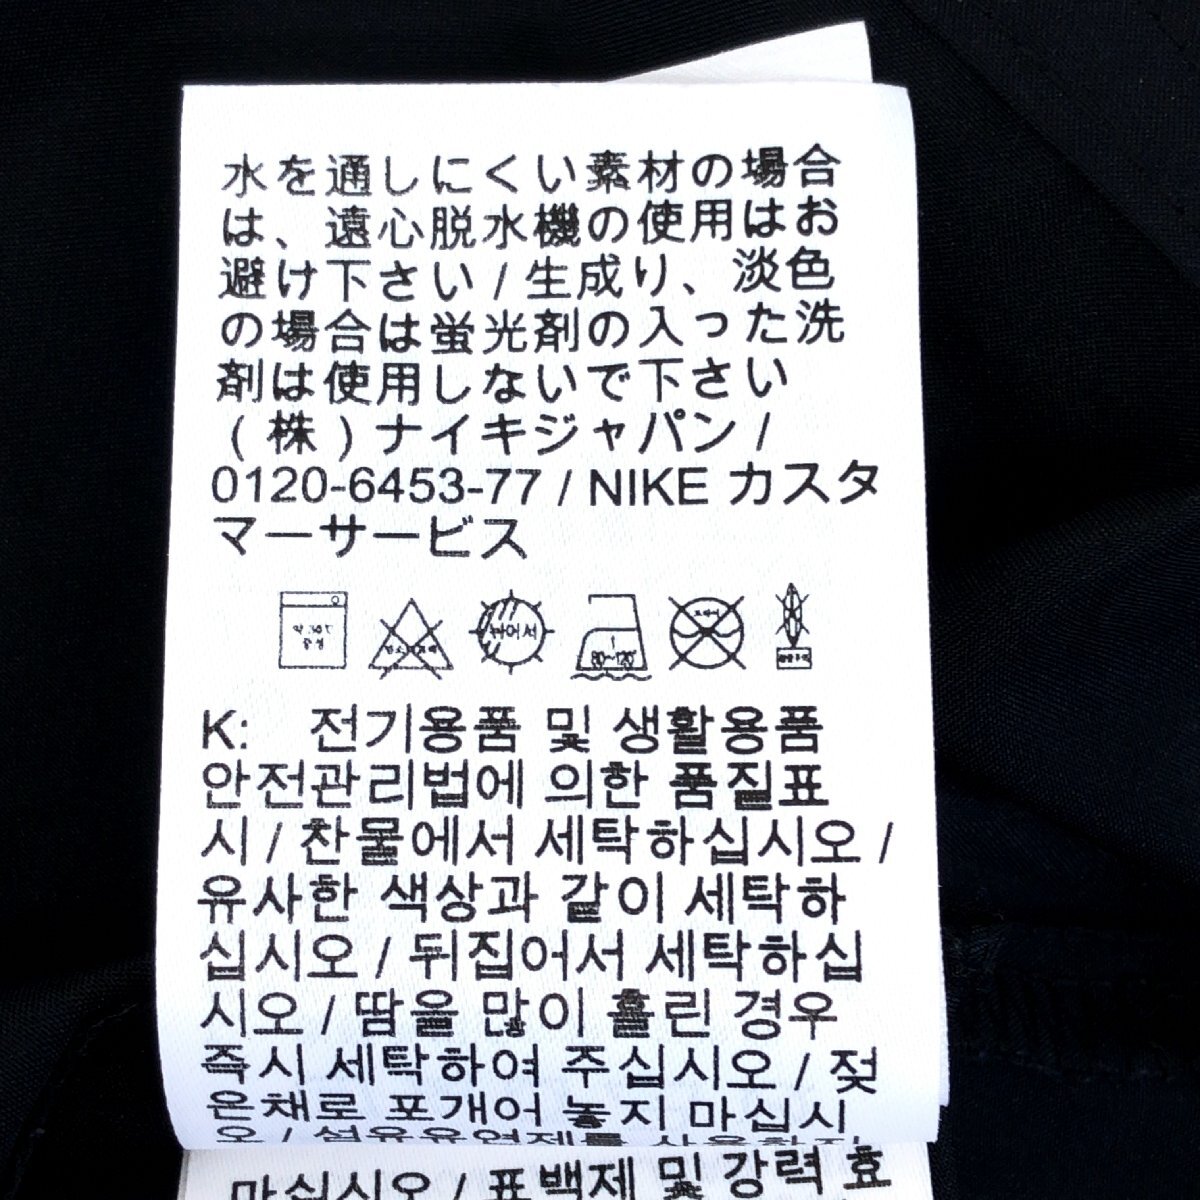 水を通しにくい素材の場合
は、遠心脱水機の使用はお
避け下さい / 生成り、淡色
の場合は蛍光剤の入った洗
剤は使用しないで下さい
(株)ナイキジャパン /
0120-6453-77 / NIKE カスタ
マーサービス
80~120
K: 전기용품 및 생활용품
안전관리법에 의한 품질표
시 / 찬물에서 세탁하십시오 /
유사한 색상과 같이 세탁하
십시오 / 뒤집어서 세탁하십
시오 / 땀을 많이 흘린 경우
즉시 세탁하여 주십시오 / 젖
은채로 포개어 놓지 마십시
오 / 섬유유연제를
마십시오 / 표백제 및 강력 효